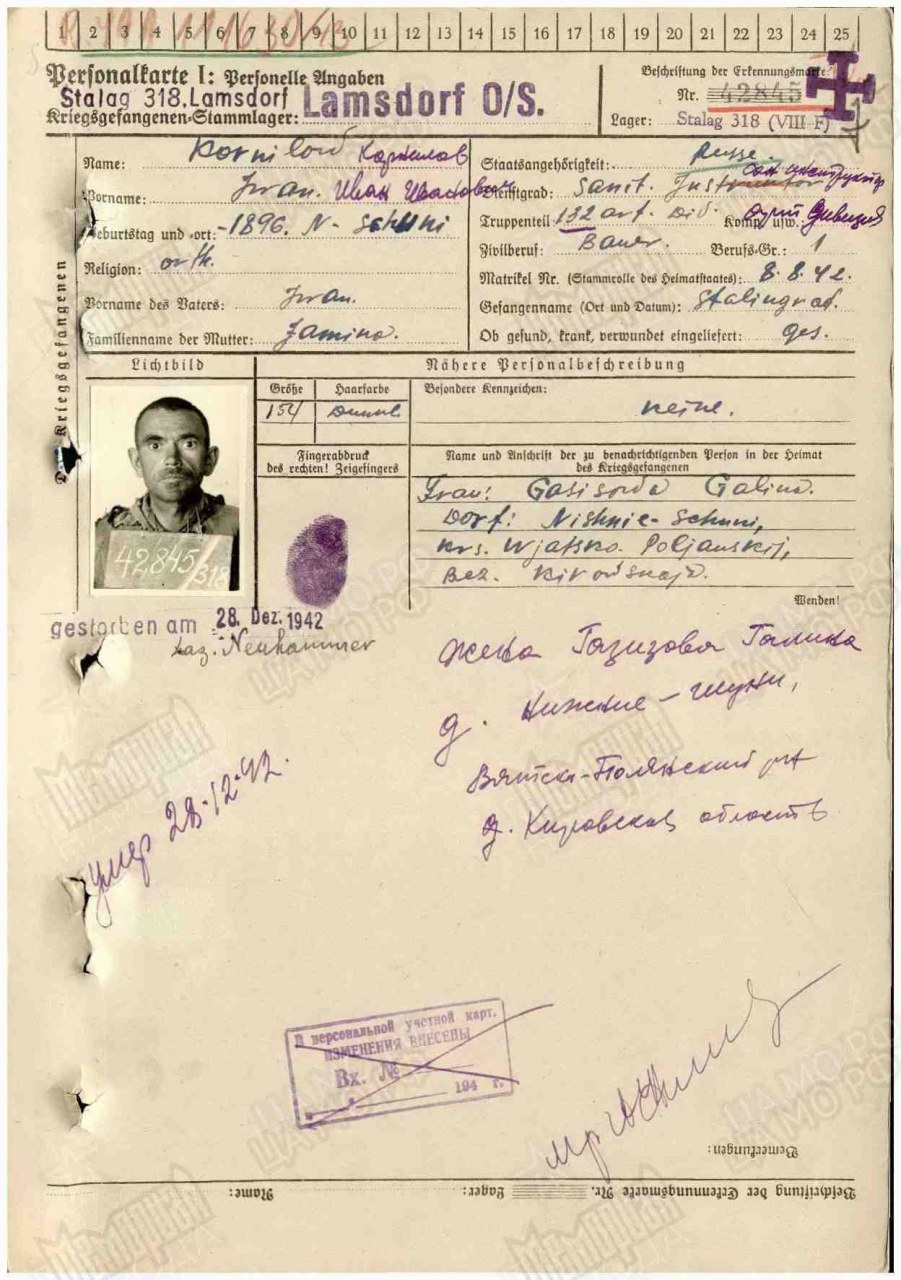 1 2 3 4 5 6 7 8 9 10 11 12 13 14 15 16 17 18 19 20 21 22 23 24 25
Personalkarte I: Personelle Angaben
Stalag 318, Lamsdorf
Kriegsgefangenen-Stammlager: Lamsdorf O/S.
Beschriftung der Erkennungsmarke
Nr. 42845
Lager: Stalag 318 (VIII F)
Des Kriegsgefangenen
Name: Kornilow Корнилов
Vorname: Iwan. Иван Иванович
Geburtstag und -ort: -1896. N- Schuni
Religion: orth.
Vorname des Vaters: Iwan.
Familienname der Mutter: Jamina.
Staatsangehörigkeit: Russe
Dienstgrad: Sanit. Instruktor сан инструктор
Truppenteil 152 art. Div. Komp. usw.: дивизия
Zivilberuf: Bauer. Berufs-Gr.: 1
Matrikel Nr. (Stammrolle des Heimatstaates): 8.8.42.
Gefangennahme (Ort und Datum): Stalingrad.
Ob gesund, krank, verwundet eingeliefert: ges.
Lichtbild
Nähere Personalbeschreibung
Größe Haarfarbe
154 Dunkel
Besondere Kennzeichen:
keine.
Fingerabdruck
des rechten! Zeigefingers
Name und Anschrift der zu benachrichtigenden Person in der Heimat
des Kriegsgefangenen
Frau: Gasisowa Galina.
Dorf: Nishnie-Schuni,
Krs. Wjatsko-Poljanskij,
Bez. Kirowskaja.
42845/318
Wenden!
gestorben am 28. Dez. 1942
Laz. Neuhammer
жена Газизова Галина
д. Нижние-Шуни,
Вятско-Полянский р-н
Кировская область
умер 28.12.42.
В персональной учетной карт.
ИЗМЕНЕНИЯ ВНЕСЕНЫ
Вх. №
194 г.
Bemerkungen:
Beschriftung der Erkennungsmarke Nr. Lager: Name:
Мемориал
ЦАМО РФ